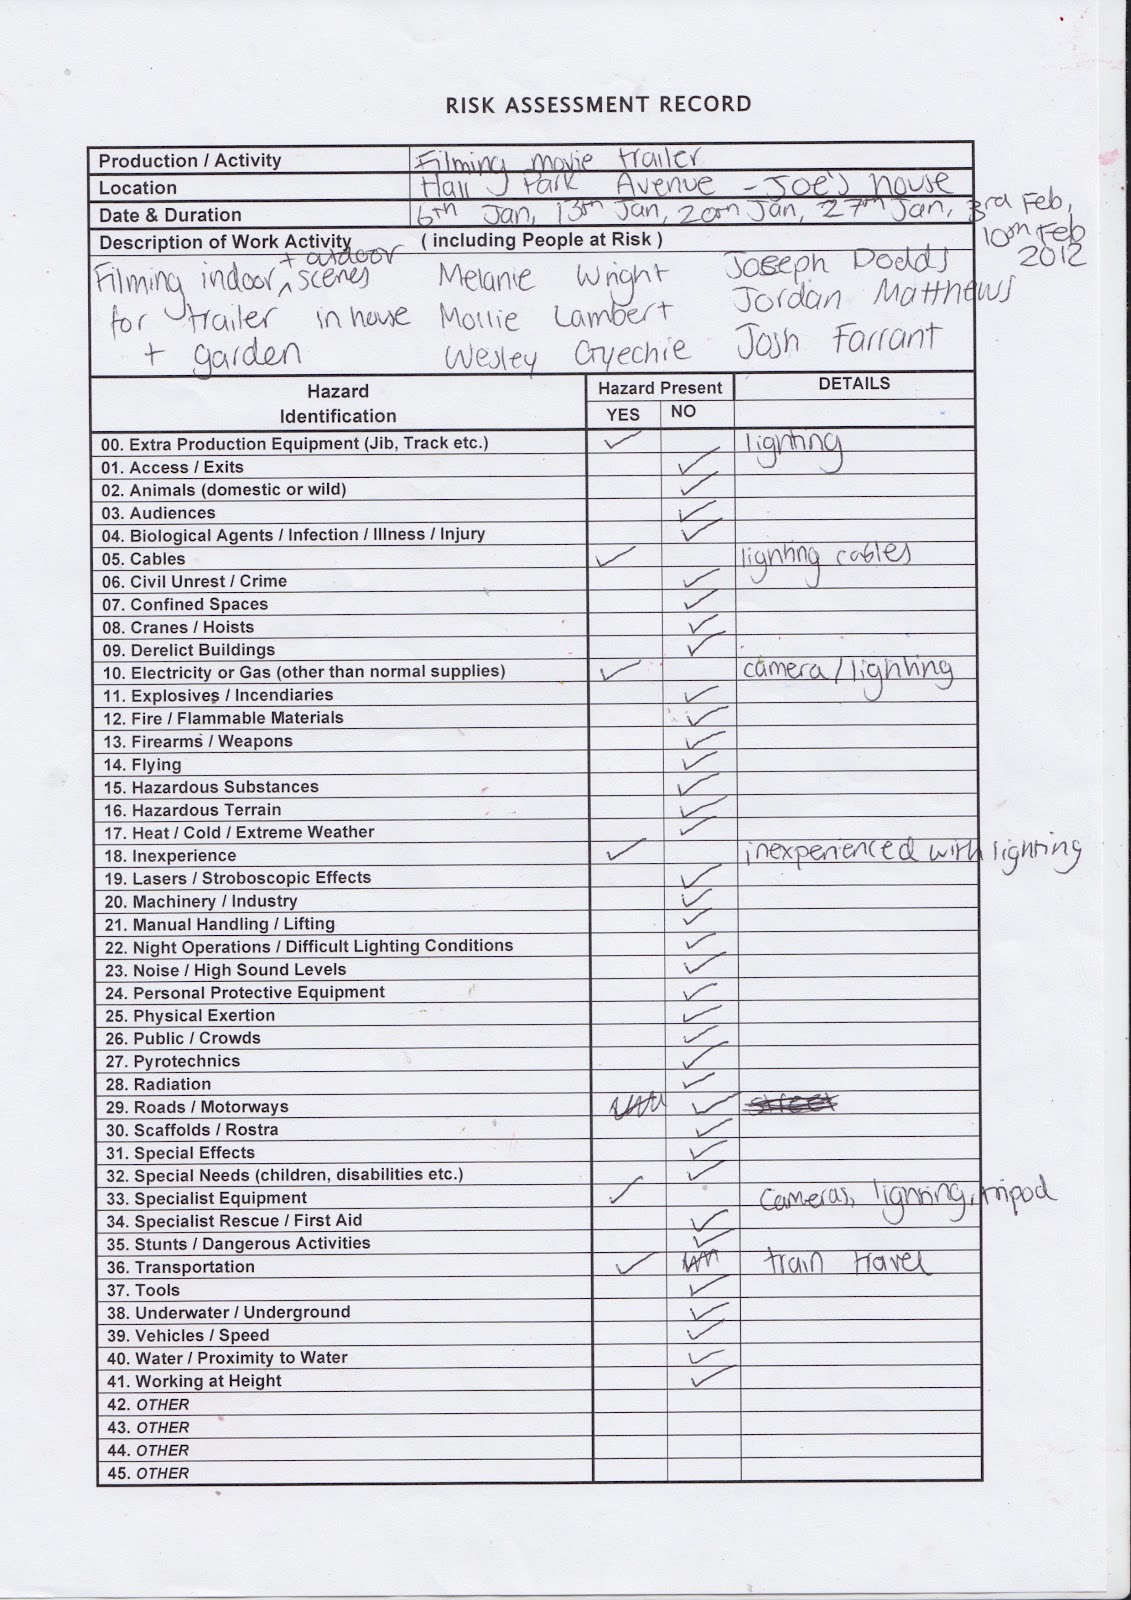 RISK ASSESSMENT RECORD
Production / Activity Filming movie trailer
Location Hall Park Avenue - Joe's house
Date & Duration 6th Jan, 13th Jan, 20th Jan, 27th Jan, 3rd Feb,
10th Feb
2012
Description of Work Activity ( including People at Risk )
+ outdoor
Filming indoor ^ scenes Melanie Wright Joseph Dodds
for trailer in house Mollie Lambert Jordan Matthews
+ garden Wesley Gyechie Josh Farrant
Hazard Identification Hazard Present DETAILS
YES NO
00. Extra Production Equipment (Jib, Track etc.) ✓ lighting
01. Access / Exits ✓
02. Animals (domestic or wild) ✓
03. Audiences ✓
04. Biological Agents / Infection / Illness / Injury ✓
05. Cables ✓ lighting cables
06. Civil Unrest / Crime ✓
07. Confined Spaces ✓
08. Cranes / Hoists ✓
09. Derelict Buildings ✓
10. Electricity or Gas (other than normal supplies) ✓ camera/lighting
11. Explosives / Incendiaries ✓
12. Fire / Flammable Materials ✓
13. Firearms / Weapons ✓
14. Flying ✓
15. Hazardous Substances ✓
16. Hazardous Terrain ✓
17. Heat / Cold / Extreme Weather ✓
18. Inexperience ✓ inexperienced with lighting
19. Lasers / Stroboscopic Effects ✓
20. Machinery / Industry ✓
21. Manual Handling / Lifting ✓
22. Night Operations / Difficult Lighting Conditions ✓
23. Noise / High Sound Levels ✓
24. Personal Protective Equipment ✓
25. Physical Exertion ✓
26. Public / Crowds ✓
27. Pyrotechnics ✓
28. Radiation ✓
29. Roads / Motorways ✓ street
30. Scaffolds / Rostra ✓
31. Special Effects ✓
32. Special Needs (children, disabilities etc.) ✓
33. Specialist Equipment ✓ Cameras, lighting, tripod
34. Specialist Rescue / First Aid ✓
35. Stunts / Dangerous Activities ✓
36. Transportation ✓ train travel
37. Tools ✓
38. Underwater / Underground ✓
39. Vehicles / Speed ✓
40. Water / Proximity to Water ✓
41. Working at Height ✓
42. OTHER
43. OTHER
44. OTHER
45. OTHER